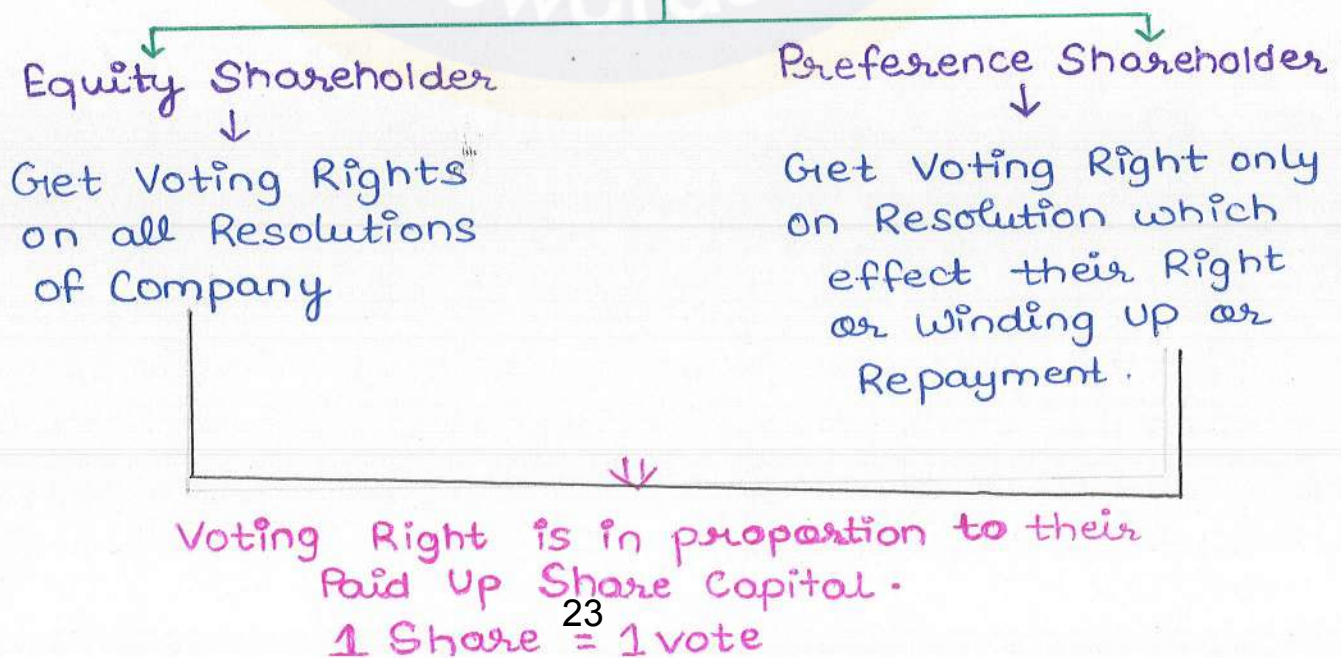 Equity Shareholder
Get Voting Rights
on all Resolutions
of Company
Preference Shareholder
Get Voting Right only
on Resolution which
effect their Right
or Winding Up or
Repayment.
Voting Right is in proportion to their
Paid Up Share Capital.
23
1 Share = 1 vote